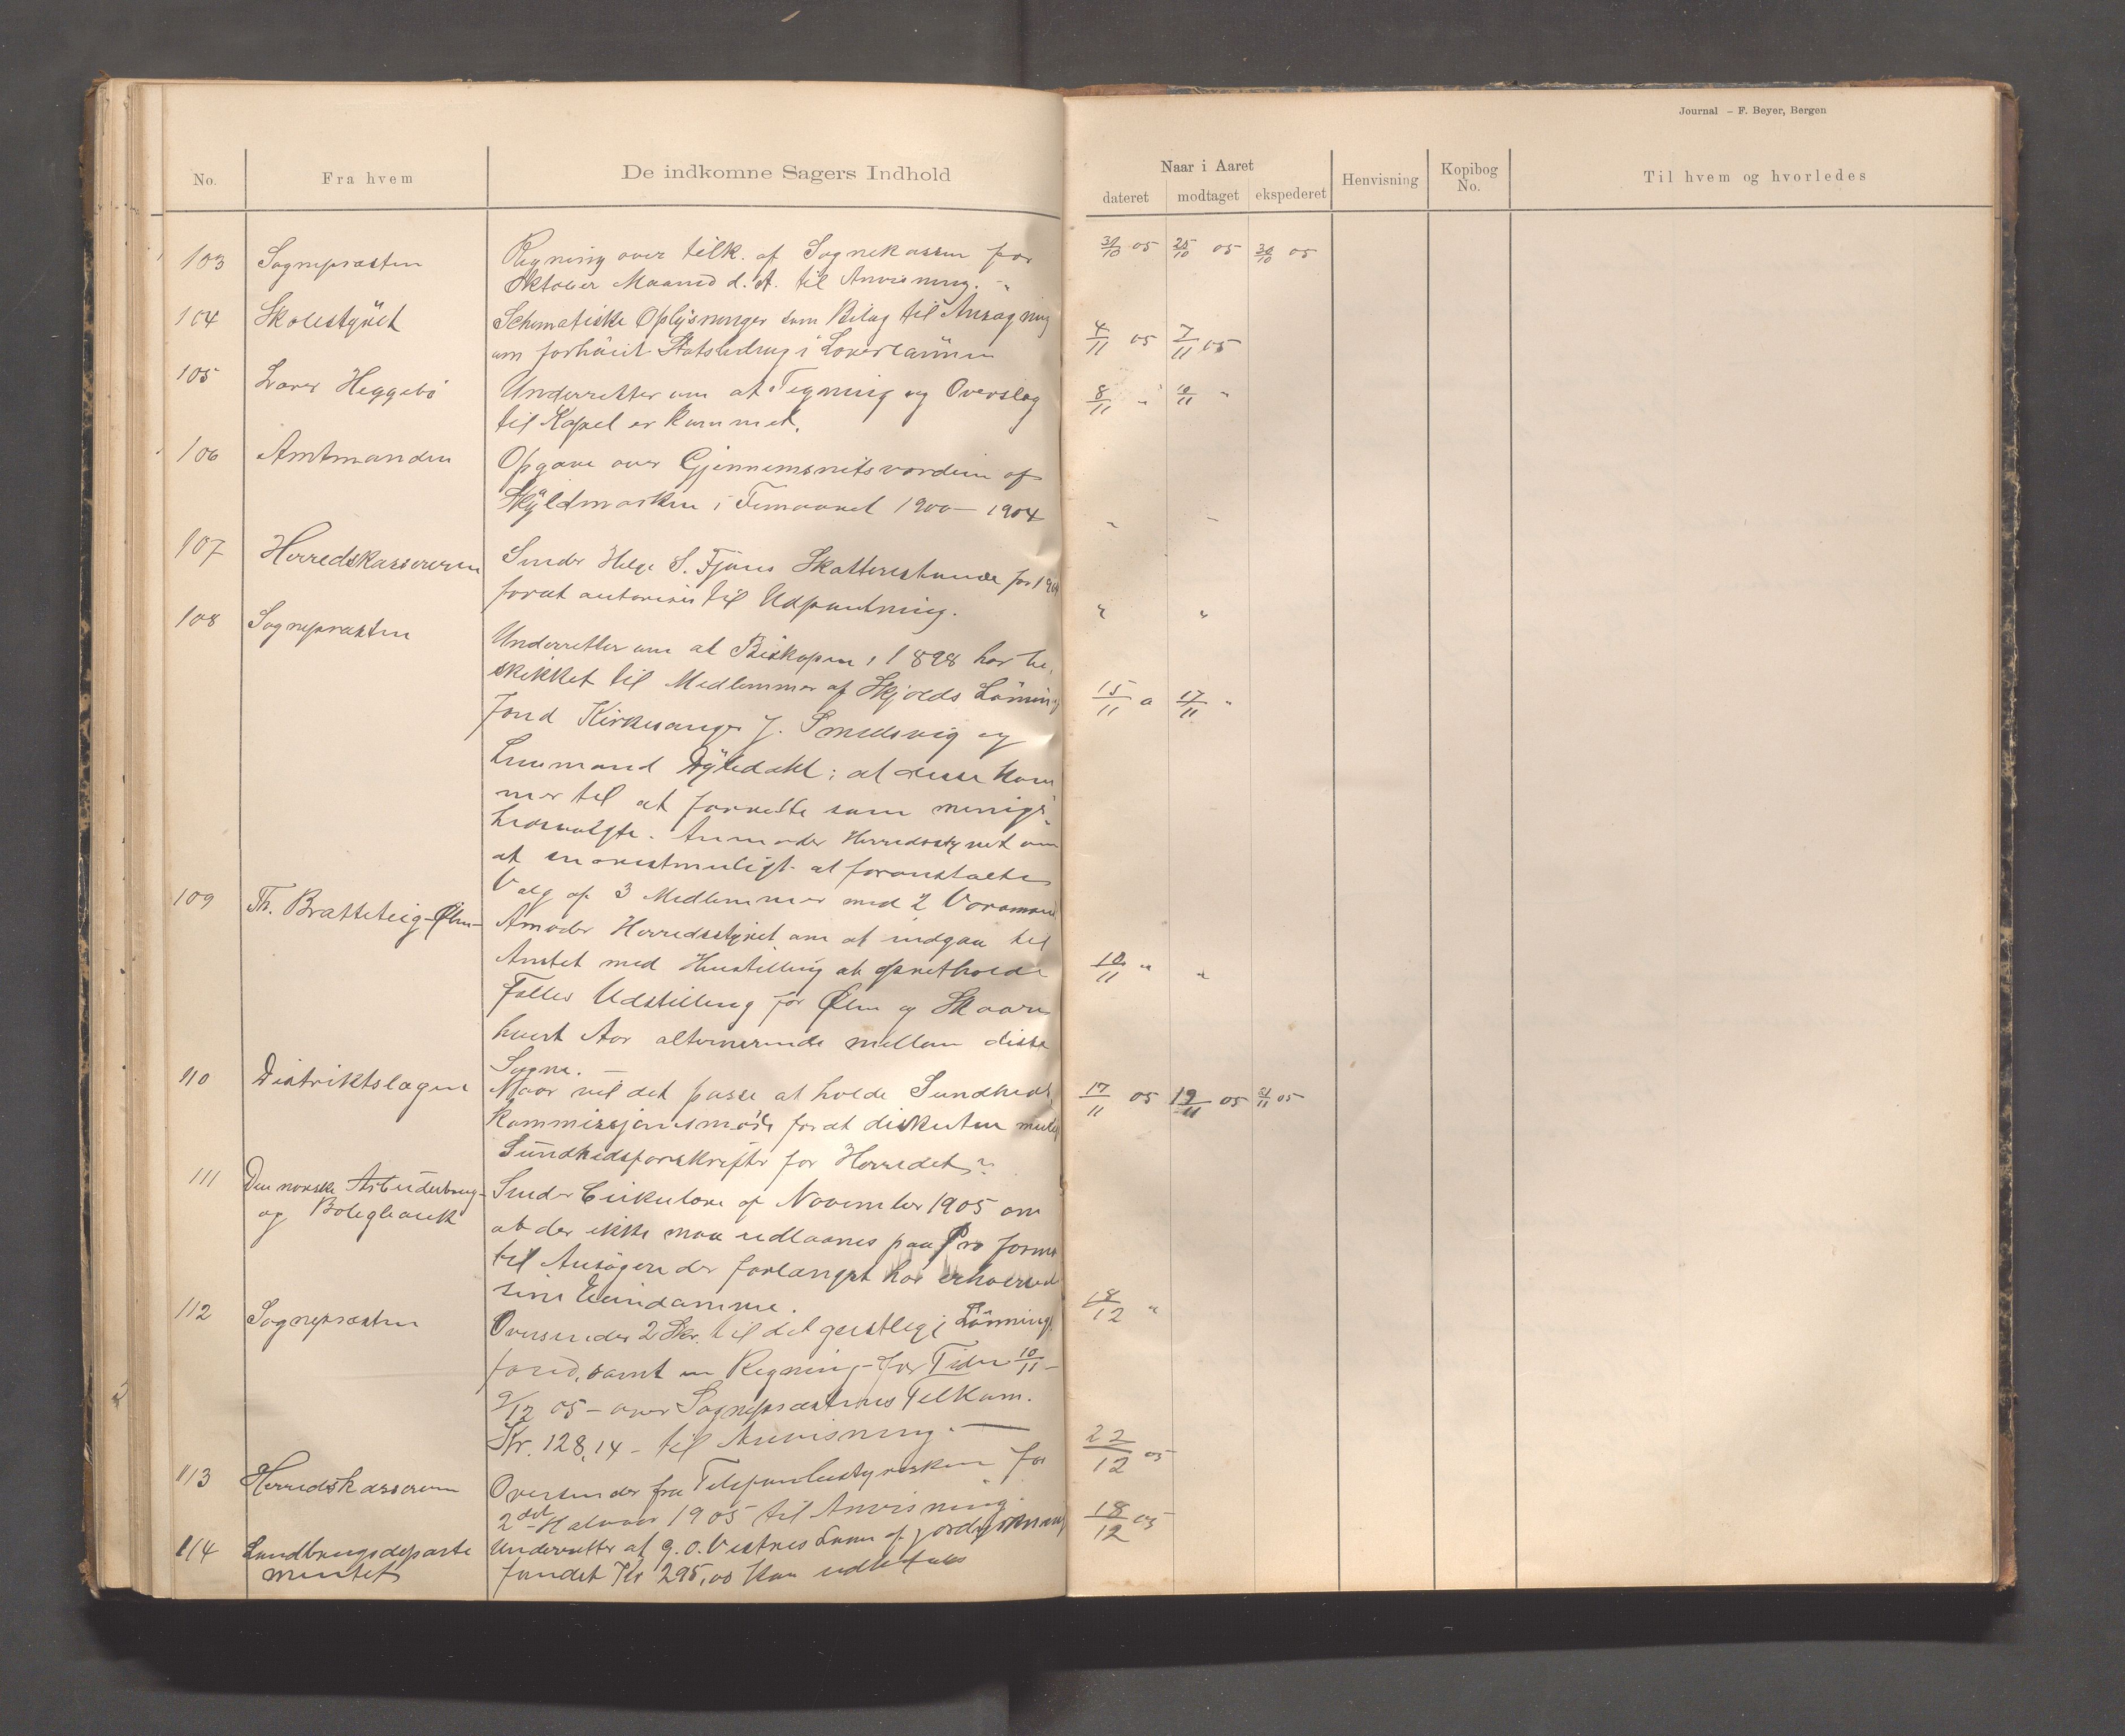 Journal – F. Beyer, Bergen
No. Fra hvem De indkomne Sagers Indhold
Naar i Aaret
dateret modtaget ekspederet Henvisning Kopibog No. Til hvem og hvorledes
103 Sognepræsten Regning over tilk. af Sognekassen for 30/10 05 25/10 05 30/10 05
Oktober Maaned d. A. til Anvisning. -"
104 Skolestyret Schematiske Oplysninger som Bilag til Ansøgning 4/11 05 7/11 05
om forhöiet Statsbidrag i
105 Lærer Heggebö Underretter om at Tegning og Overslag 8/11 " 10/11 "
til Kapel er kommet.
106 Amtmanden Opgave over Gjennemsnitsværdien af
Skyldmarken i Femaaret 1900 – 1904 " "
107 Herredskassereren Sender Helge S. Fjøns Skatterestance for
forat autorises til Udpantning. " "
108 Sognepræsten Underretter om at Biskopen i 1898 har be-
skikket til Medlemmer af Skjolds Lönnings 15/11 a 17/11 "
fond Kirkesanger J. Smedsvig og
Lensmand Dybedahl; at disse kom
mer til at forrette som menigs-
hedsvalgte. Anmoder Herredsstyret om
at snarestmuligt at foranstalte
Valg af 3 Medlemmer med 2 Varamænd
109 Th. Bratteteig-Ølen- Amoder Herredsstyret om at indgaa til
Amtet med Henstilling at opretholde 10/11 " "
Fælles Udstilling for Ølen og Skaare
hvert Aar alternerende mellem disse
Sogne. —
110 Distriktslægen Naar vil det passe at holde Sundheds 17/11 05 19/11 05 21/11 05
Kommissjonsmöde forat diskutere mulig
Sundhedsforskrifter for Herredet?
111 Den norske Arbeiderbrug- Sender Cirkulære af November 1905 om
og Boligbank at der ikke maa udlaanes paa Pro forma
til Ansögere der forlængst har erhvervet
sine Eiendomme.
112 Sognepræsten Oversender 2 Skr. til det geistlige Lönnings 18/12 "
fond, samt en Regning – for Tiden 10/11 –
9/12 05 – over Sognepræstens Tilkom.
Kr. 128,14 – til Anvisning. —
113 Herredskassereren Oversender fra Telefonbestyrersken for 22/12 05
2det Halvaar 1905 til Anvisning.
114 Landbrugsdeparte Underretter at G. O. Vestnes Laan af Jorddyrkning 18/12 05
mentet fondet Kr 295,00 kan udbetales